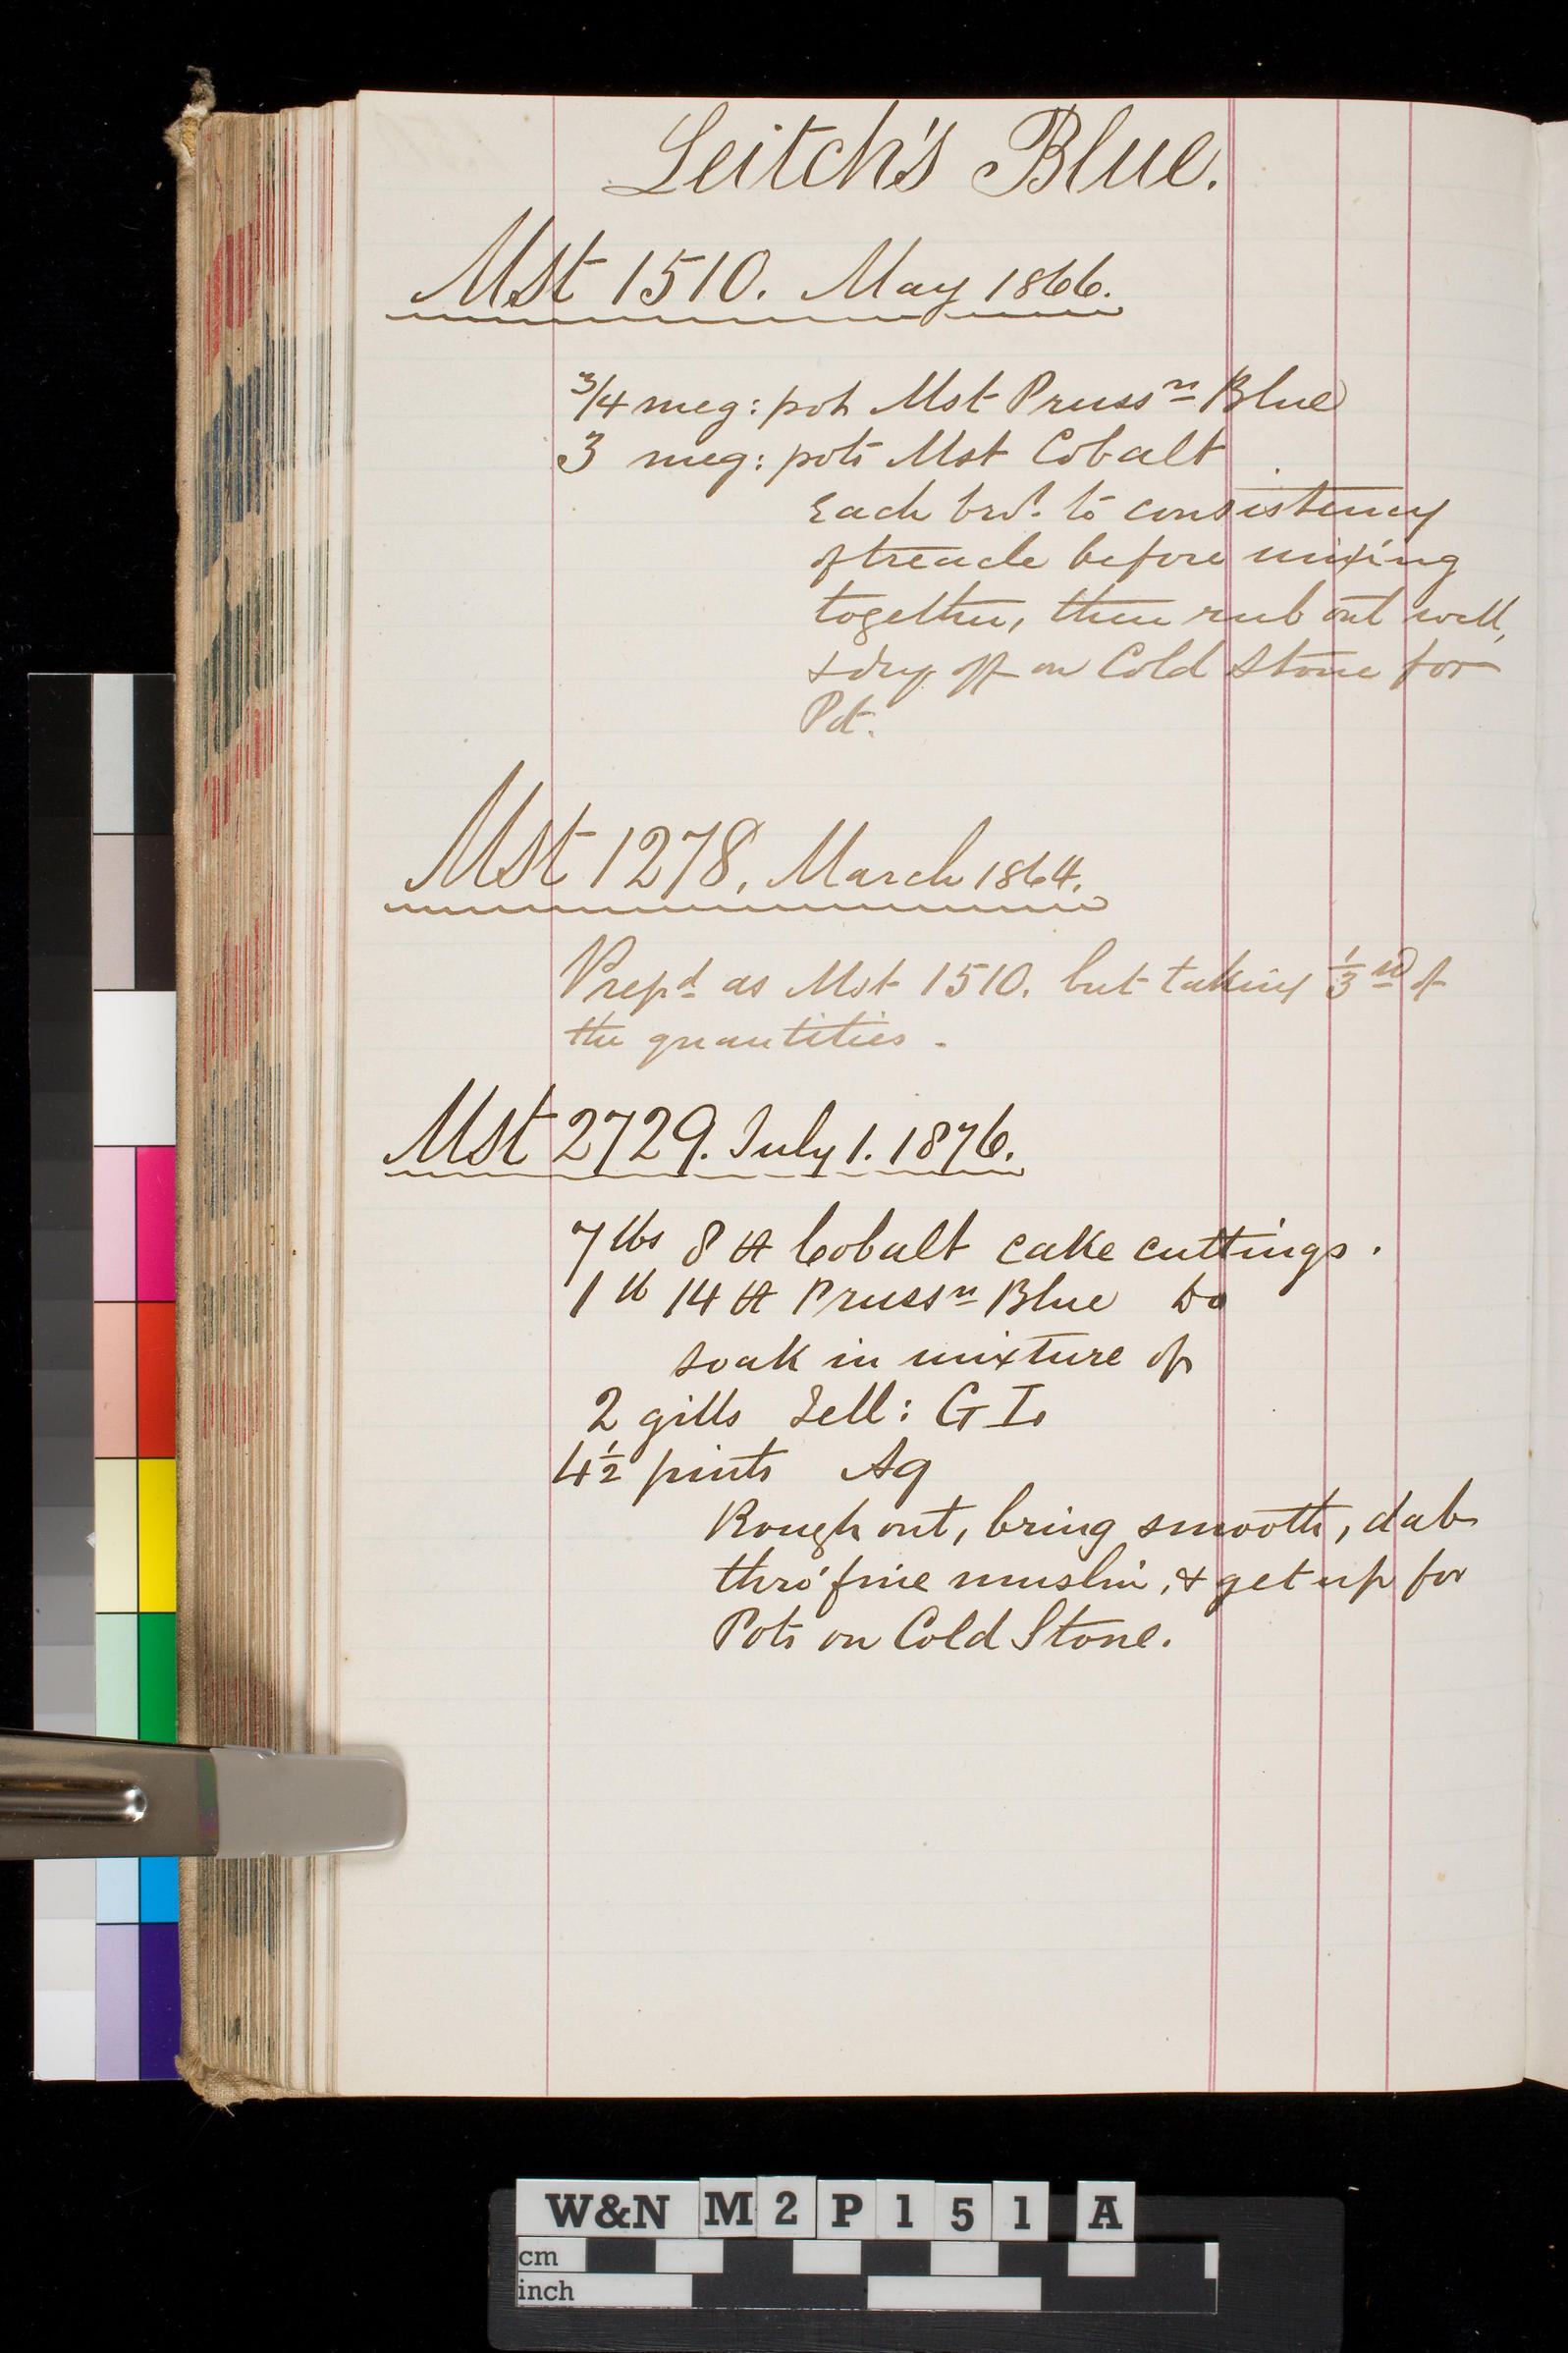 Leitch's Blue.
Mst 1510. May 1866.
3/4 meg: pot Mst Prussn Blue
3 meg: pots Mst Cobalt
Each brd. to consistency
of treacle before mixing
together, then rub out well,
& dry off on Cold Stone for
Pot.
Mst 1278, March 1864.
Prepd as Mst 1510. but taking 1/3rd of
the quantities.
Mst 2729. July 1. 1876.
7 lbs 8 Cobalt cake cuttings.
1 lb 14 Prussn Blue Do
soak in mixture of
2 gills Sell: G I.
4½ pints Aq
Rough out, bring smooth, dab
thro' fine muslin, & get up for
Pots on Cold Stone.
W&N M2P151 A
cm
inch